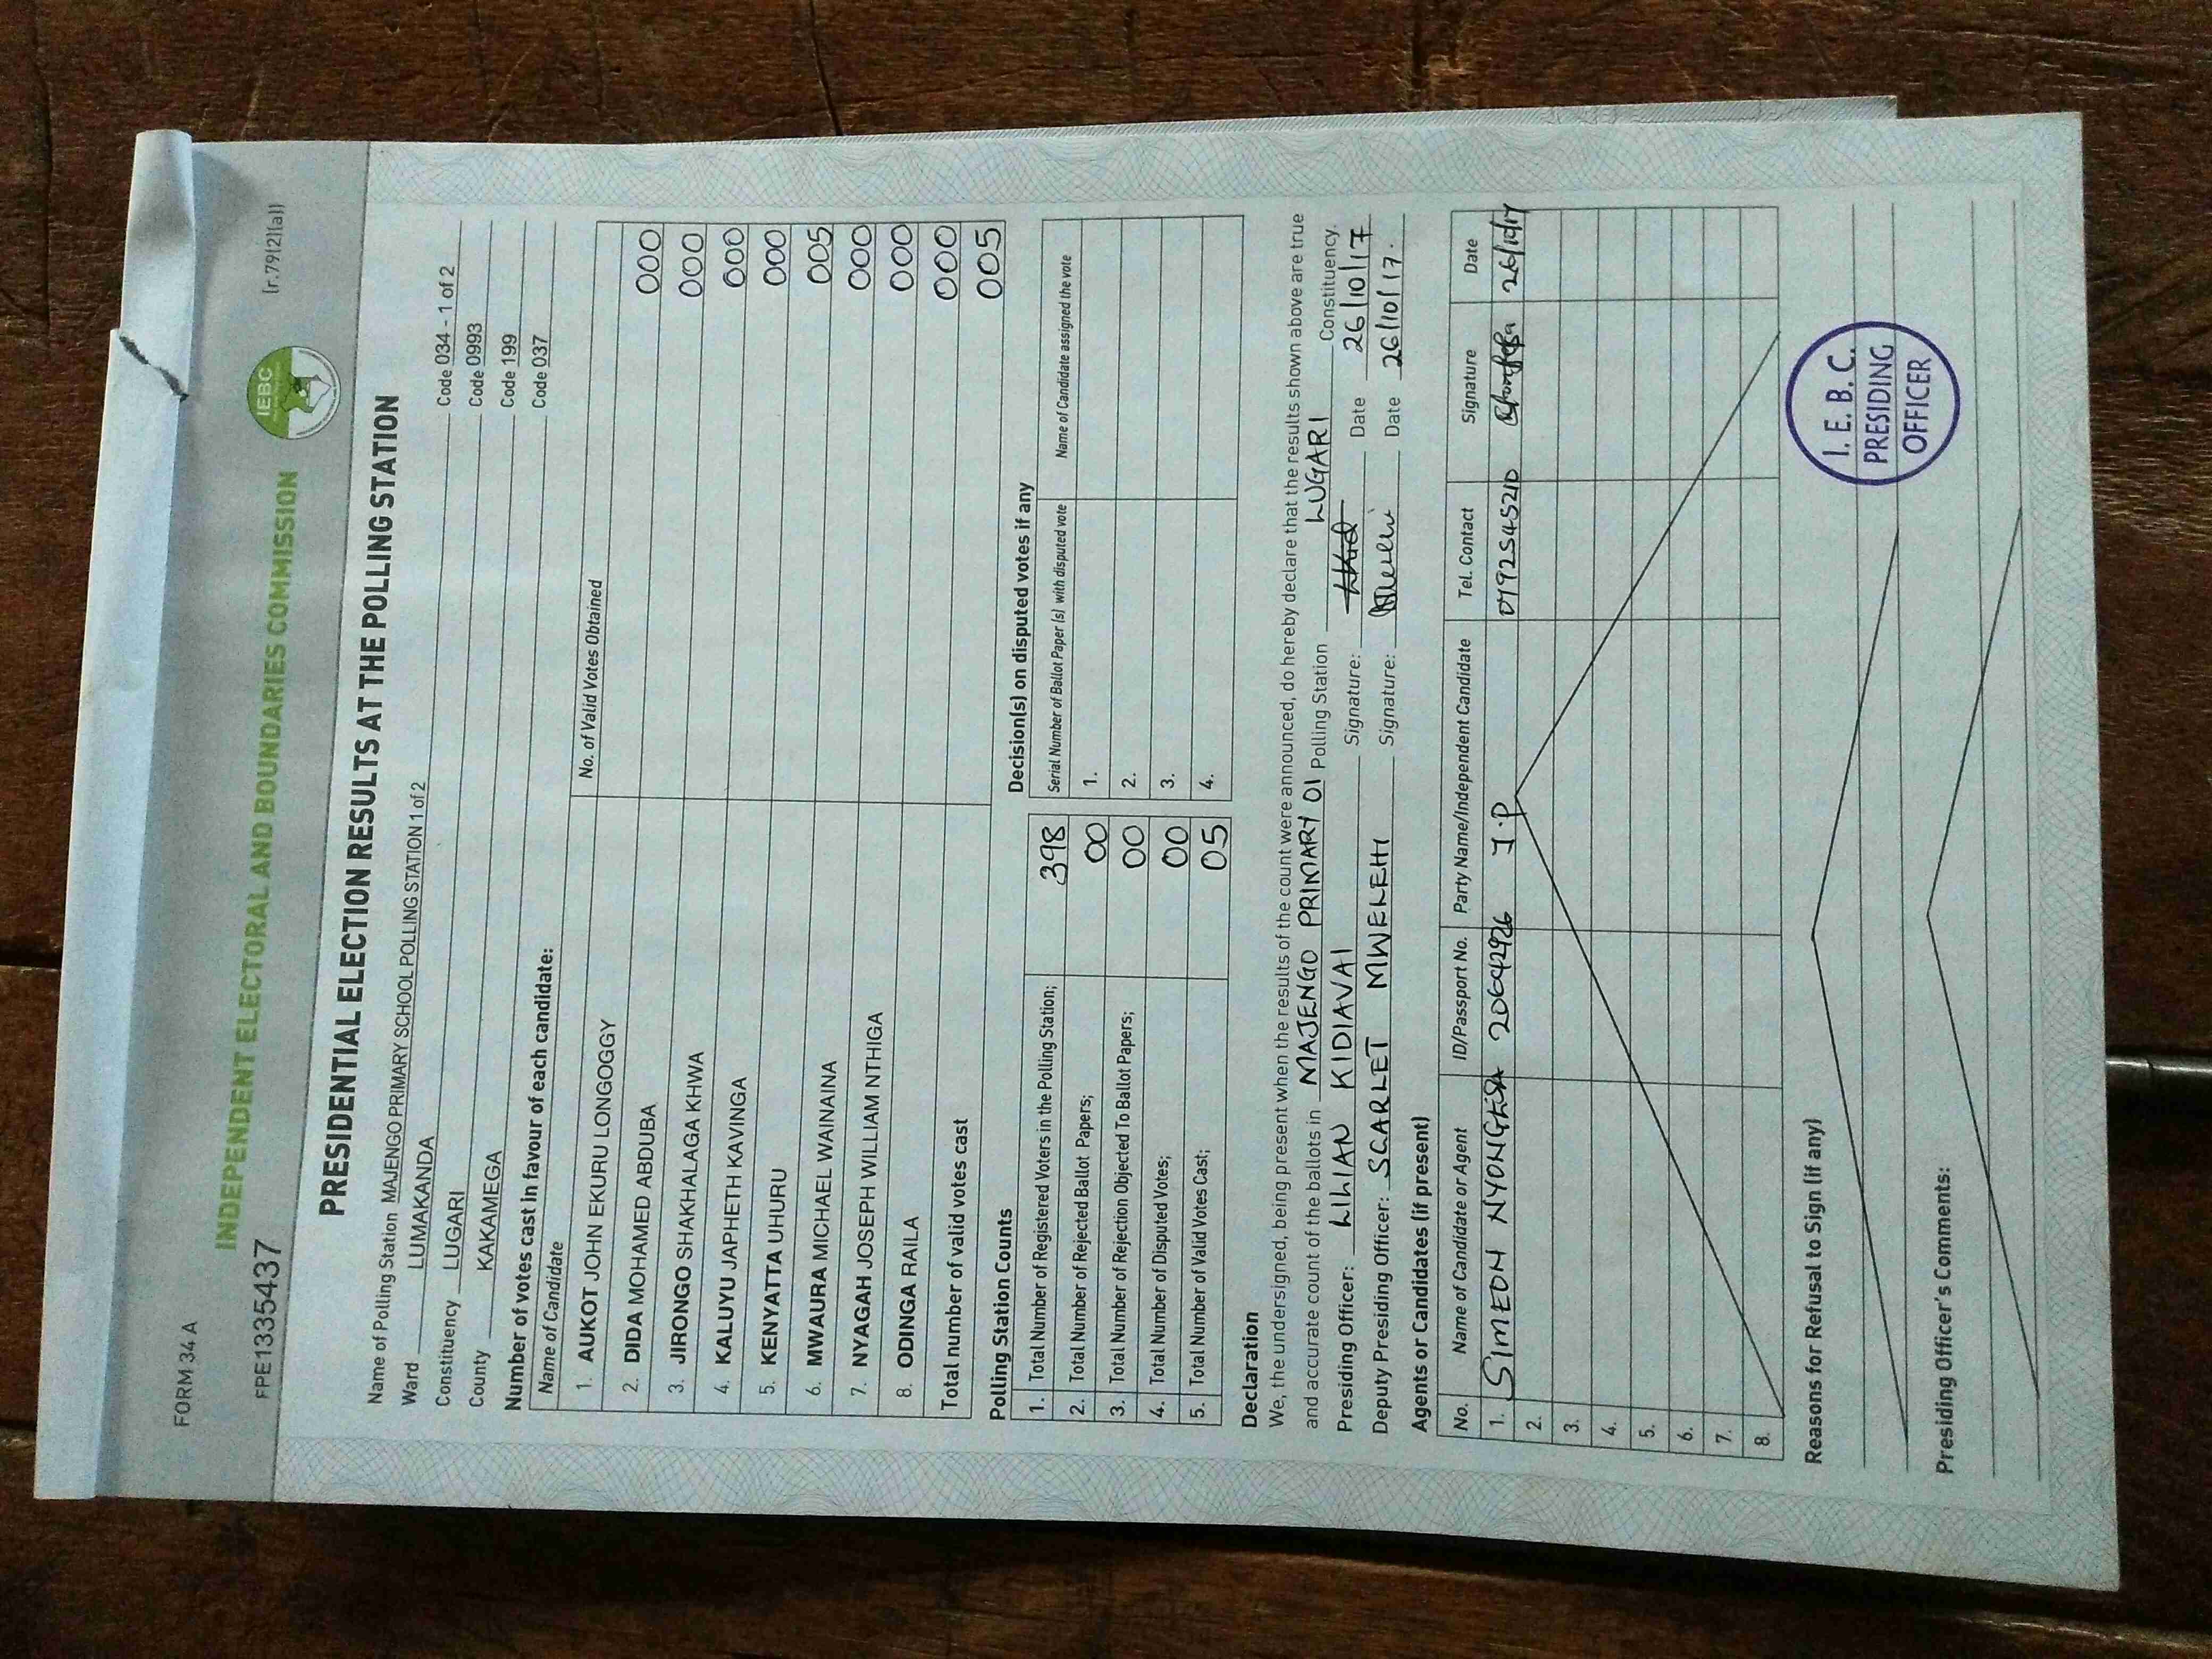 FORM 34 A
[r.79(2)(a)]
INDEPENDENT ELECTORAL AND BOUNDARIES COMMISSION
IEBC
FPE1335437
PRESIDENTIAL ELECTION RESULTS AT THE POLLING STATION
Name of Polling Station MAJENGO PRIMARY SCHOOL POLLING STATION 1 of 2 Code 034 - 1 of 2
Ward LUMAKANDA Code 0993
Constituency LUGARI Code 199
County KAKAMEGA Code 037
Number of votes cast in favour of each candidate:
Name of Candidate No. of Valid Votes Obtained
1. AUKOT JOHN EKURU LONGOGGY 000
2. DIDA MOHAMED ABDUBA 000
3. JIRONGO SHAKHALAGA KHWA 000
4. KALUYU JAPHETH KAVINGA 000
5. KENYATTA UHURU 005
6. MWAURA MICHAEL WAINAINA 000
7. NYAGAH JOSEPH WILLIAM NTHIGA 000
8. ODINGA RAILA 000
Total number of valid votes cast 005
Polling Station Counts
1. Total Number of Registered Voters in the Polling Station; 398
2. Total Number of Rejected Ballot Papers; 00
3. Total Number of Rejection Objected To Ballot Papers; 00
4. Total Number of Disputed Votes; 00
5. Total Number of Valid Votes Cast; 05
Decision(s) on disputed votes if any
Serial Number of Ballot Paper (s) with disputed vote Name of Candidate assigned the vote
1.
2.
3.
4.
Declaration
We, the undersigned, being present when the results of the count were announced, do hereby declare that the results shown above are true
and accurate count of the ballots in MAJENGO PRIMARY 01 Polling Station LUGARI Constituency.
Presiding Officer: LILIAN KIDIAVAI Signature: Date 26/10/17
Deputy Presiding Officer: SCARLET MWELEHI Signature: Date 26/10/17.
Agents or Candidates (if present)
No. Name of Candidate or Agent ID/Passport No. Party Name/Independent Candidate Tel. Contact Signature Date
1. SIMEON NYONGESA 20642926 J.P 0792545210 26/10/17
2.
3.
4.
5.
6.
7.
8.
Reasons for Refusal to Sign (if any)
Presiding Officer's Comments:
I. E. B. C.
PRESIDING
OFFICER